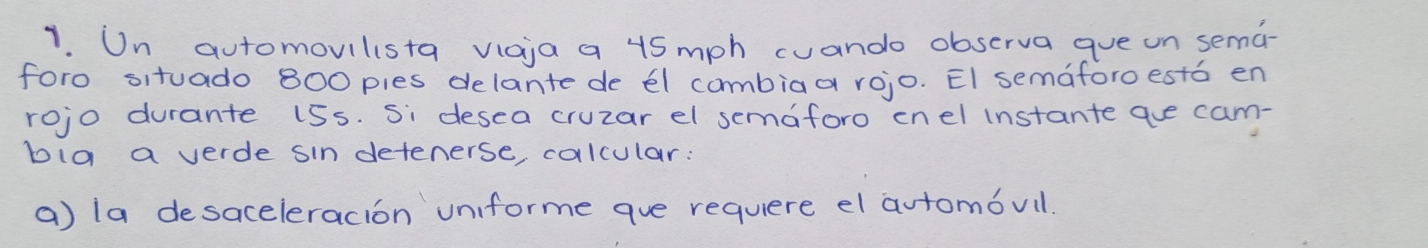 1. Un automovilista viaja a 45 mph cuando observa que un semá-
foro situado 800 pies delante de él cambia a rojo. El semáforo está en
rojo durante 15s. Si desea cruzar el semáforo en el instante que cam-
bia a verde sin detenerse, calcular:
a) la desaceleración uniforme que requiere el automóvil.